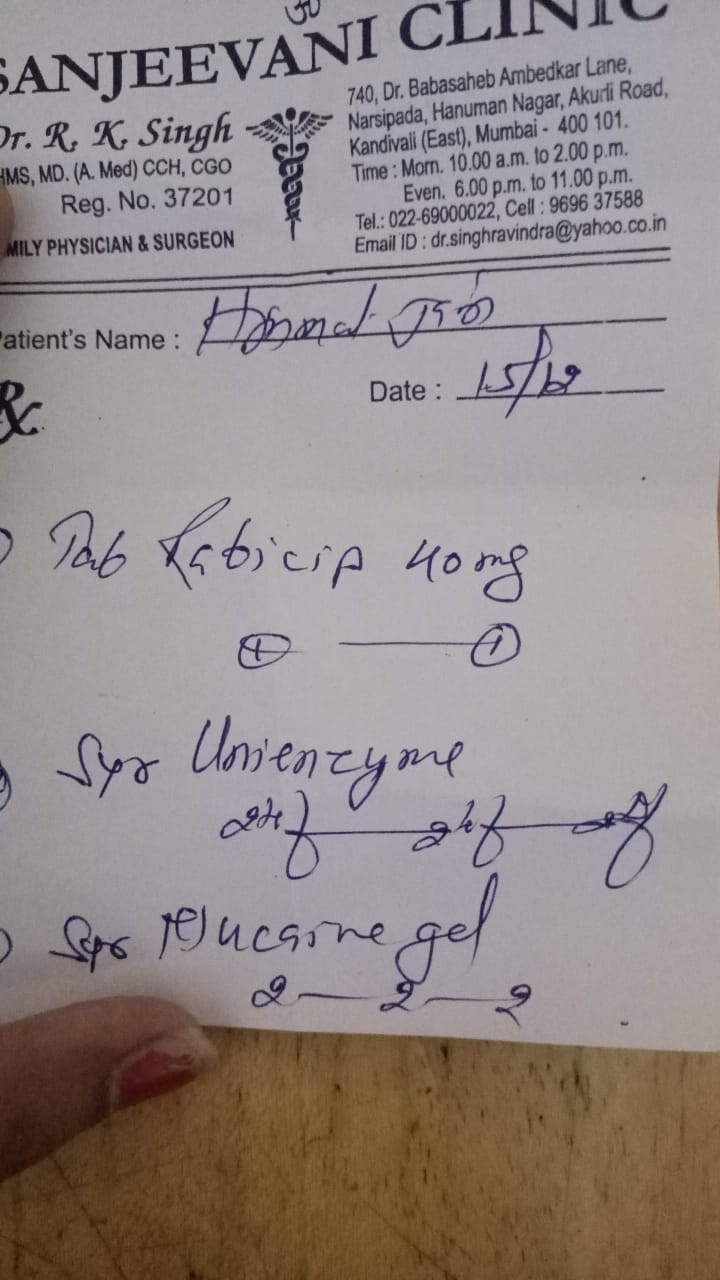 ॐ
SANJEEVANI CLINIC
Dr. R. K. Singh
HMS, MD. (A. Med) CCH, CGO
Reg. No. 37201
MILY PHYSICIAN & SURGEON
740, Dr. Babasaheb Ambedkar Lane,
Narsipada, Hanuman Nagar, Akurli Road,
Kandivali (East), Mumbai - 400 101.
Time : Morn. 10.00 a.m. to 2.00 p.m.
Even. 6.00 p.m. to 11.00 p.m.
Tel.: 022-69000022, Cell : 9696 37588
Email ID : dr.singhravindra@yahoo.co.in
Patient's Name :
Date : 15/12
Rx
Tab Rabicip 40 mg
1 — 1
Syr Unienzyme
2tsf — 2tsf — 2tsf
Syr Mucaine gel
2 — 2 — 2